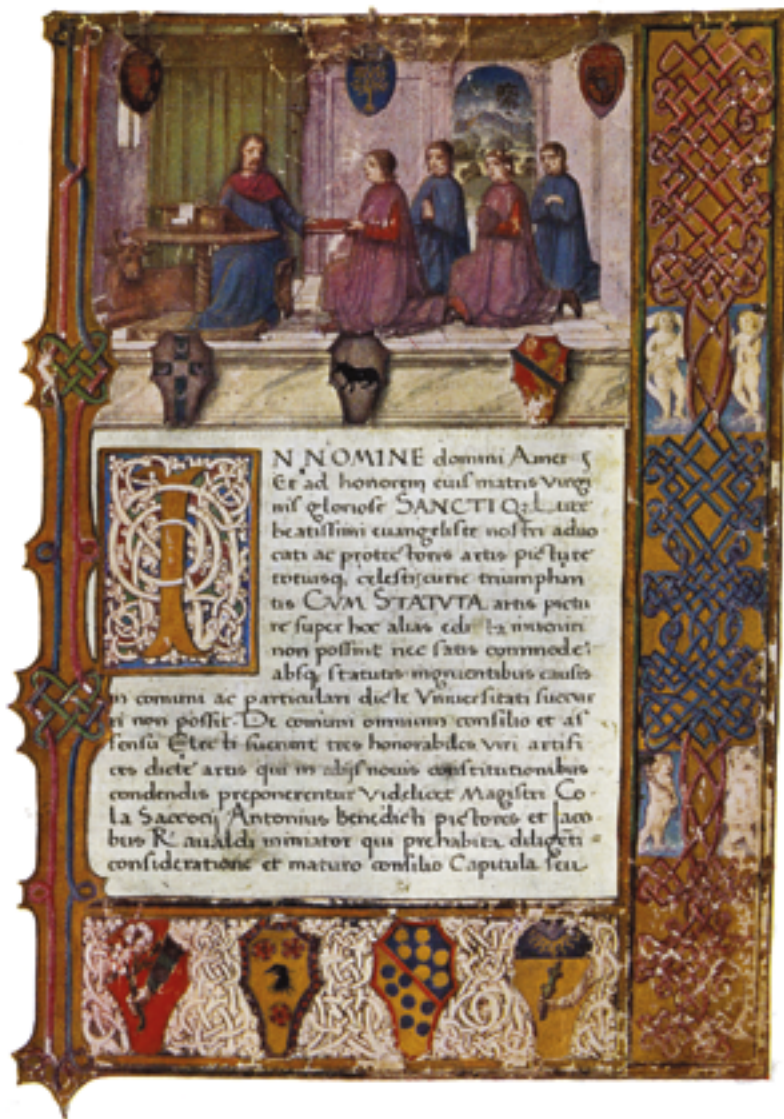 IN NOMINE domini Amen
Et ad honorem euis matris virgi
nis gloriose SANCTI Q; Luce
beatissimi euangeliste nostri aduo
cati ac protectoris artis picture
totiusq; celestis curie triumphan
tis CUM STATUTA artis pictu
re super hoc alias edita inueniri
non possint nec satis commode
absq; statutis ingruentibus causis
in comuni ac particulari dicte Vniuersitati succur
ri non possit. De comuni omnium consilio et as
sensu Electi fuerunt tres honorabiles viri artifi
ces dicte artis qui in abijs nouis constitutionibus
condendis preponerentur Videlicet Magistri Co
la Saccocij Antonius benedicti pictores et Jaco
bus miniator qui prehabita diligenti
consideratione et maturo consilio Capitula seu